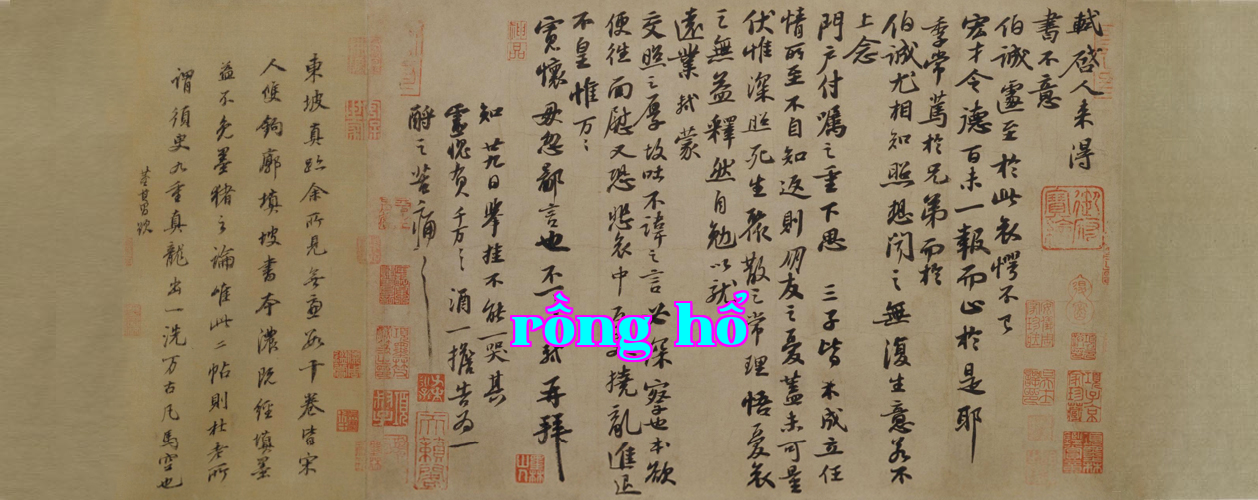 軾啓人來得
書不意
伯誠遽至於此哀愕不已
宏才令德百未一報而止於是耶
季常篤於兄弟而於
伯誠尤相知照想聞之無復生意若不
上念
門户付囑之重下思三子皆未成立任
情所至不自知返則朋友之憂蓋未可量
伏惟深照死生聚散之常理悟憂哀
之無益釋然自勉以就
遠業軾蒙
交照之厚故吐不諱之言必深察也本欲
便往面慰又恐悲哀中反撓亂進退
不皇惟万万
寬懷毋忽鄙言也不一軾再拜
知廿九日舉挂不能一哭其
靈愧負千万千万酒一擔告為一
酹之苦痛苦痛
東坡真跡余所見無慮數十卷皆宋
人雙鉤廓填坡書本濃既經填墨
益不免墨豬之論唯此二帖則杜老所
謂須臾九重真龍出一洗万古凡馬空也
董其昌題
rồng hổ